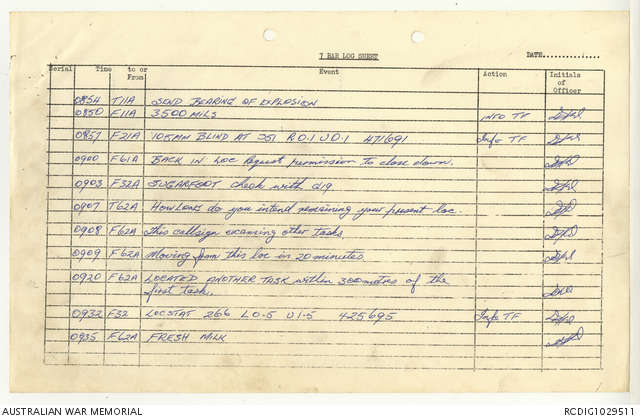 7 RAR LOG SHEET
DATE...............
Serial Time to or From Event Action Initials of Officer
0854 T11A SEND BEARING OF EXPLOSION
0850 F11A 3500 MILS INFO TF
0857 F21A 105MM BLIND AT 251 R0.1 U0.1 471691 Info TF
0900 F61A BACK IN LOC Request permission to close down.
0903 F32A SUGARFOOT check with 019
0907 T62A HOW LONG do you intend remaining your present loc.
0908 F62A This callsign examining other Tasks
0909 F62A Moving from this loc in 20 minutes
0920 F62A LOCATED ANOTHER TASK within 300 metres of the
first task.
0932 F32 LOCSTAT 266 L0-5 U1-5 425695 Info TF
0935 F62A FRESH MILK
AUSTRALIAN WAR MEMORIAL
RCDIG1029511